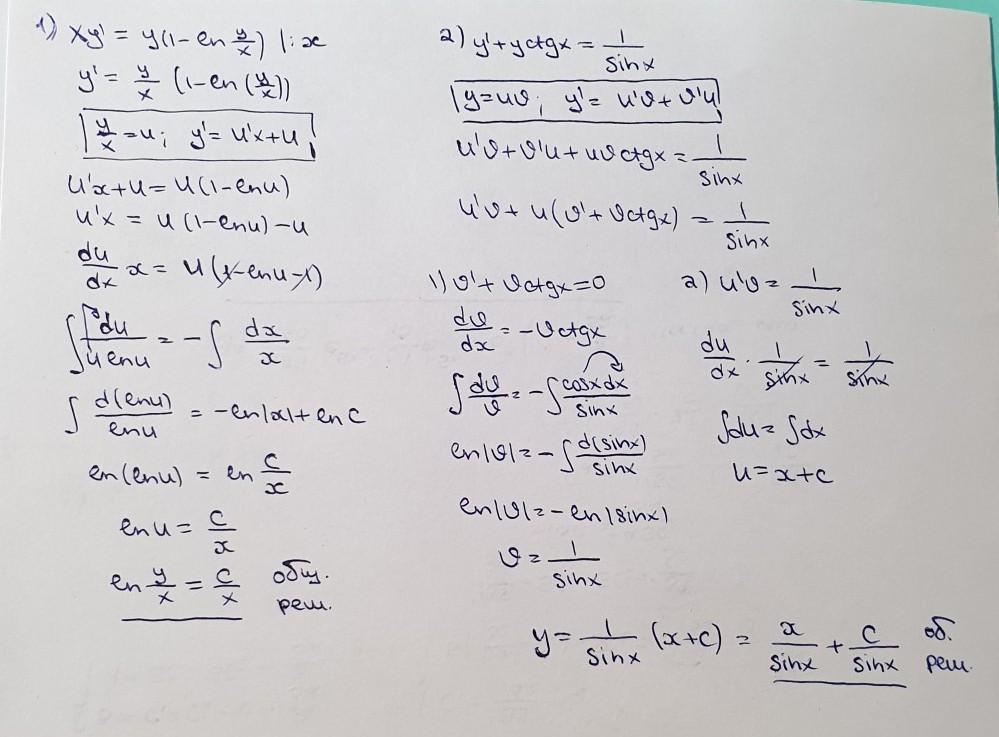 1) xy' = y(1-ln y/x) |:x
y' = y/x (1-ln(y/x))
y/x = u; y' = u'x+u
u'x+u = u(1-lnu)
u'x = u(1-lnu)-u
du/dx x = u(1-lnu-1)
∫ du/(u lnu) = -∫ dx/x
∫ d(lnu)/lnu = -ln|x|+ln C
ln(lnu) = ln C/x
lnu = C/x
ln y/x = C/x общ.
реш.
2) y'+yctgx = 1/sinx
y=uϑ; y' = u'ϑ+ϑ'u
u'ϑ+ϑ'u+uϑctgx = 1/sinx
u'ϑ+u(ϑ'+ϑctgx) = 1/sinx
1) ϑ'+ϑctgx=0
dϑ/dx = -ϑctgx
∫ dϑ/ϑ = -∫ cosxdx/sinx
ln|ϑ| = -∫ d(sinx)/sinx
ln|ϑ| = -ln|sinx|
ϑ = 1/sinx
2) u'ϑ = 1/sinx
du/dx · 1/sinx = 1/sinx
∫du = ∫dx
u = x+c
y = 1/sinx (x+c) = x/sinx + c/sinx об.
реш.